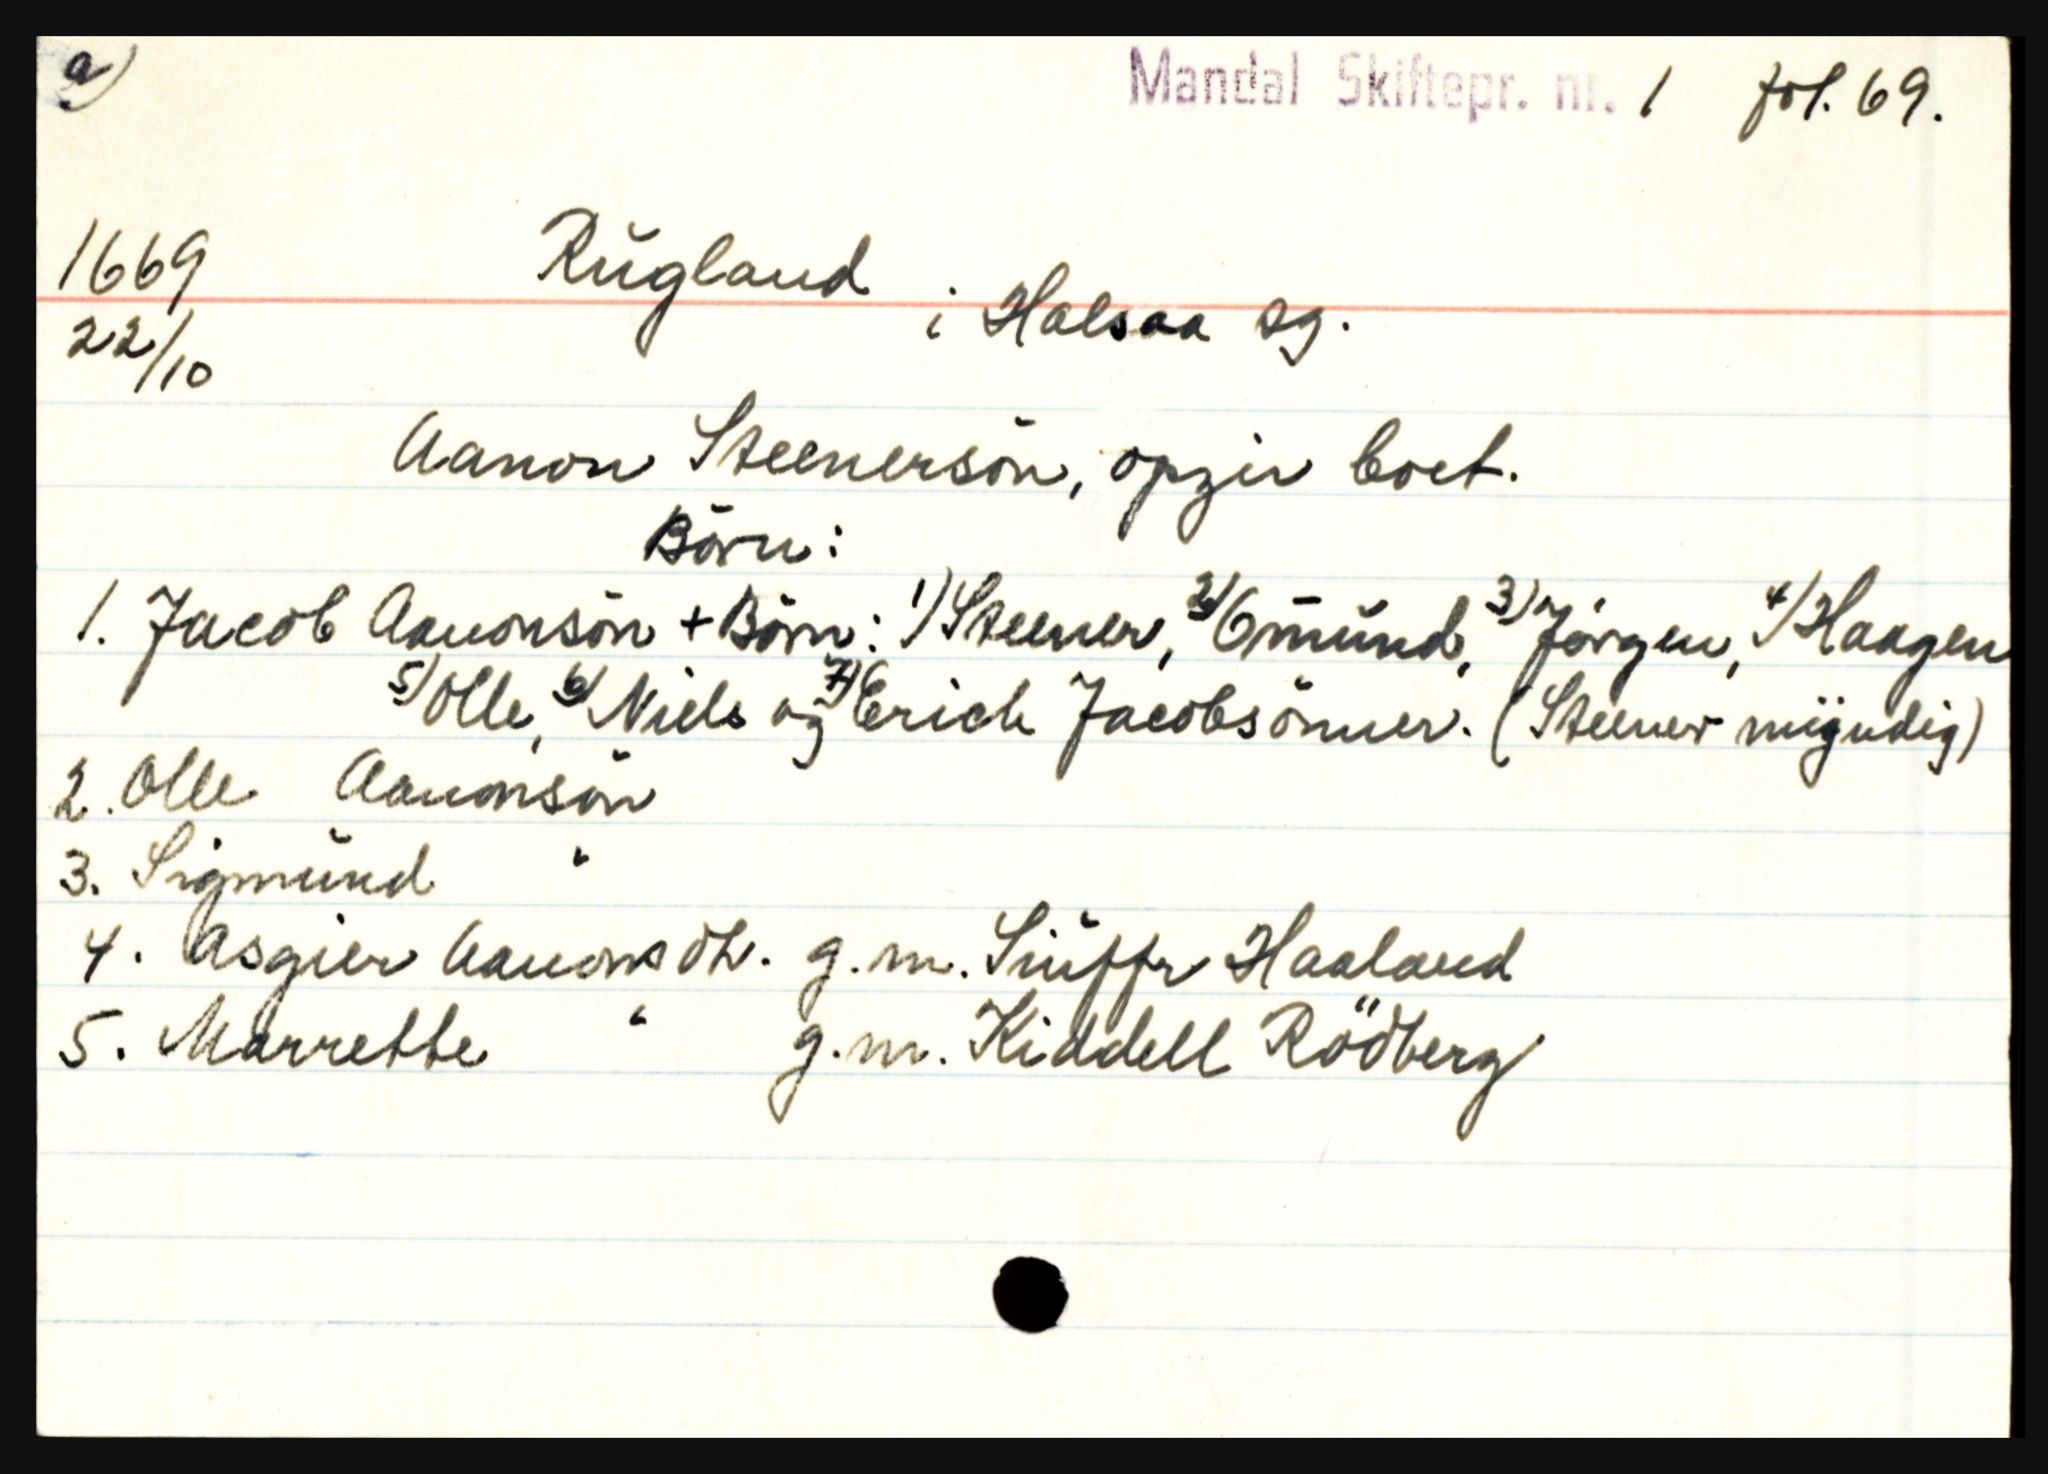 a)
Mandal Skiftepr. nr. 1 fol. 69.
1669
22/10
Rŭgland
i Halsaa sg.
Aanon Steenersön, opgir boet.
Börn:
1. Jacob Aanonsön + Börn: 1) Steener, 2) Omŭnd, 3) Jörgen, 4) Haagen
5) Olle, 6) Niels og 7) Erich Jacobsönner. (Steener myndig)
2. Olle Aanonsön
3. Sigmŭnd "
4. Asgier Aanons dtr. g.m. Siŭffr Haaland
5. Marrette " g.m. Kiddell Rödberg